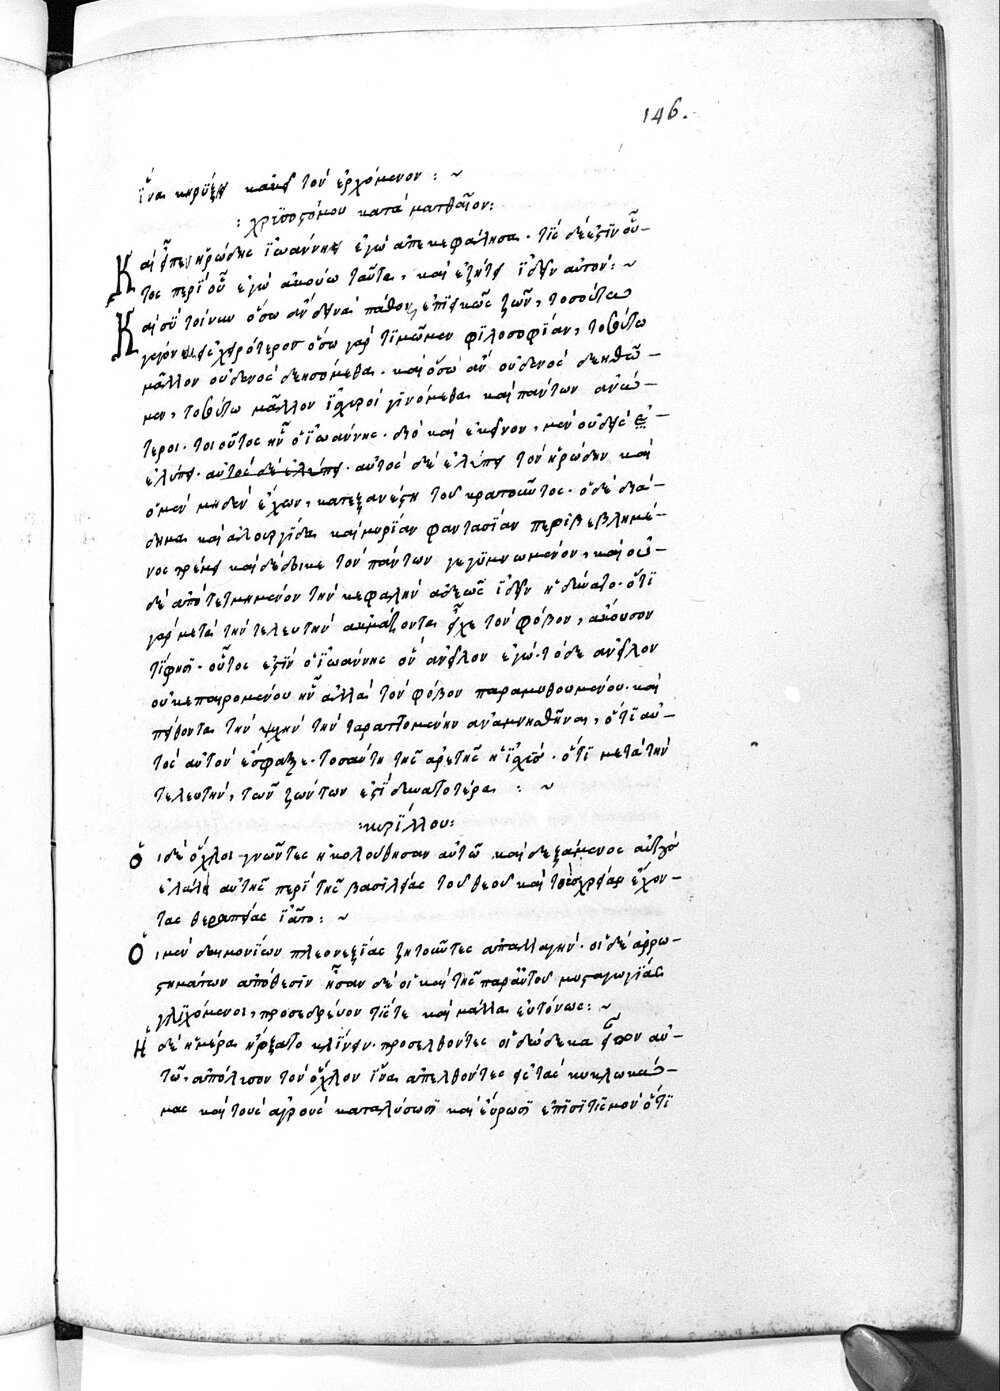 146.
ἵνα κηρύξῃ κακεῖ τὸν ἐρχόμενον : ~
: χρυσοστόμου κατὰ ματθαῖον :
Καὶ εἶπεν ἡρώδης ἰωάννην ἐγὼ ἀπεκεφάλησα · τίς δέ ἐστιν οὗ-
τος περὶ οὗ ἐγὼ ἀκούω ταῦτα, καὶ ἐζήτει ἰδεῖν αὐτόν : ~
Καὶ σὺ τοίνυν ὅσω ἂν δεινὰ πάθοις ἐπιεικῶς ζῶν, τοσούτω
γέγονας ἰσχυρότερος ὅσω γὰρ τιμῶμεν φιλοσοφίαν, τοσούτω
μᾶλλον οὐδενὸς δεησόμεθα · καὶ ὅσω ἂν οὐδενὸς δεηθῶ-
μεν, τοσούτω μᾶλλον ἰσχυροὶ γινόμεθα καὶ πάντων ἀνώ-
τεροι · τοιοῦτος ἦν ὁ ἰωάννης · διὸ καὶ ἐκεῖνον, μὲν οὐδεὶς ἐ-
ἐλύπει · αὐτὸς δὲ ἐλύπει · αὐτὸς δὲ ἐλύπει τὸν ἡρώδην καὶ
ὁ μὲν μηδὲν ἔχων, κατεξανέστη τοῦ κρατοῦντος · ὁ δὲ διά-
δημα καὶ ἁλουργίδα καὶ μυρίαν φαντασίαν περιβεβλημέ-
νος τρέμει καὶ δέδοικε τὸν πάντων γεγυμνωμένον, καὶ οὐ-
δὲ ἀποτετμημένον τὴν κεφαλὴν ἀδεῶς ἰδεῖν ἠδύνατο · ὅτι
γὰρ μετὰ τὴν τελευτὴν ἀκμάζοντα εἶχε τὸν φόβον, ἄκουσον
τί φησι · οὗτος ἐστὶν ὁ ἰωάννης ὃν ἀνεῖλον ἐγώ · τὸ δὲ ἀνεῖλον
οὐκ ἐπαιρομένου ἦν ἀλλὰ τὸν φόβον παραμυθουμένου · καὶ
πείθοντα τὴν ψυχὴν τὴν ταραττομένην ἀναμνησθῆναι, ὅτι αὐ-
τὸς αὐτὸν ἔσφαξε · τοσαύτη τῆς ἀρετῆς ἡ ἰσχύς · ὅτι μετὰ τὴν
τελευτήν, τῶν ζώντων ἐστὶ δυνατοτέρα : ~
: κυρίλλου :
Ὁι δὲ ὄχλοι γνῶντες ἠκολούθησαν αὐτῶ καὶ δεξάμενος αὐτοὺς
ἐλάλει αὐτῆς περὶ τῆς βασιλείας τοῦ θεοῦ καὶ τοὺς χρείαν ἔχον-
τας θεραπείας ἰᾶτο : ~
Ὁι μὲν δαιμονίων πλεονεξίας ζητοῦντες ἀπαλλαγήν · οἱ δὲ ἀρρω-
στημάτων ἀπόθεσιν ἦσαν δὲ οἳ καὶ τῆς παρ' αὐτοῦ μυσταγωγίας
γλιχόμενοι, προσεδρεύον τίετε καὶ μάλα εὐτόνως : ~
Ἡ δὲ ἡμέρα ἤρξατο κλίνειν · προσελθόντες οἱ δώδεκα εἶπον αὐ-
τῶ, ἀπόλυσον τὸν ὄχλον ἵνα ἀπελθόντες εἰς τὰς κύκλω κώ-
μας καὶ τοὺς ἀγροὺς καταλύσωσι καὶ εὕρωσι ἐπισιτισμὸν ὅτι